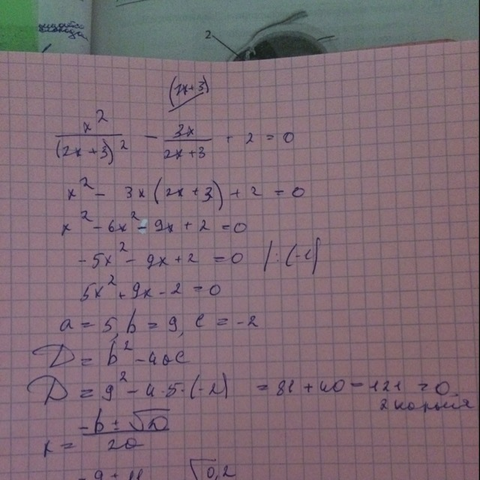 2
(2x+3)
x² / (2x+3)² - 3x / 2x+3 + 2 = 0
x² - 3x(2x+3) + 2 = 0
x² - 6x² - 9x + 2 = 0
-5x² - 9x + 2 = 0 | : (-1)
5x² + 9x - 2 = 0
a = 5, b = 9, c = -2
D = b² - 4ac
D = 9² - 4·5·(-2) = 81 + 40 = 121 = 0
2 корня
x = -b ± √D / 2a
-9 ± 11
√0,2